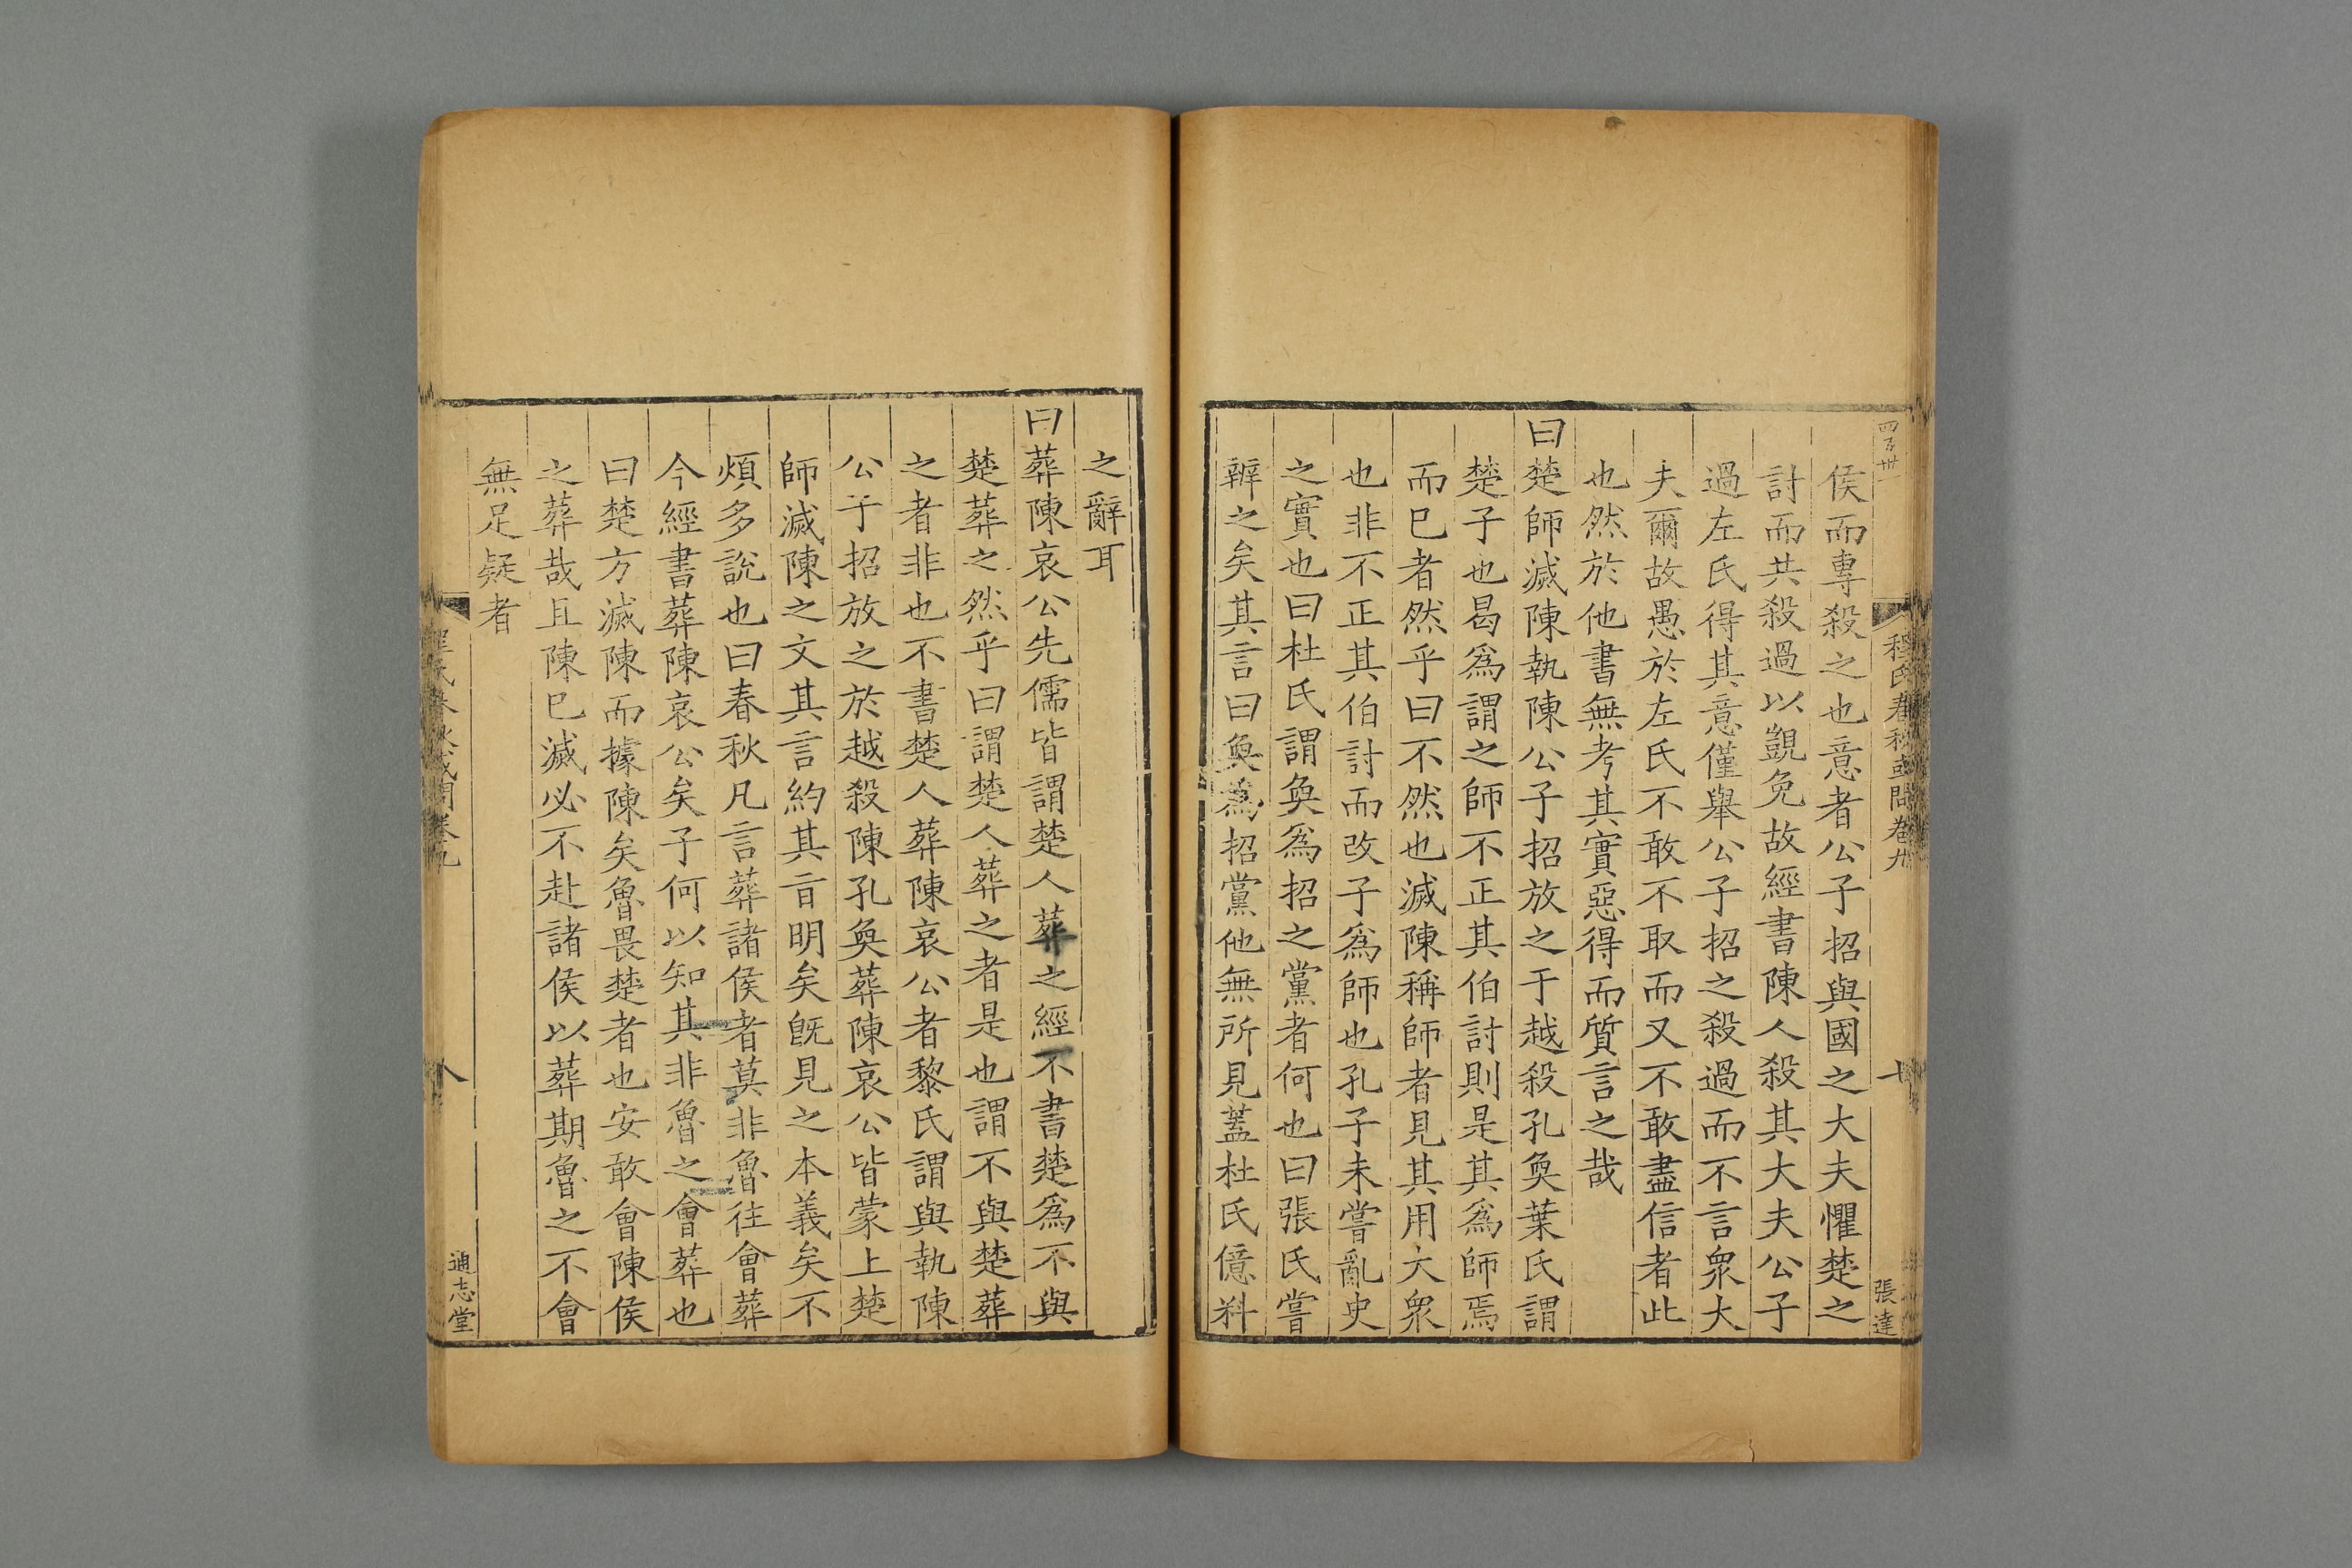 四百卅
程氏春秋或問卷九
十
張達
侯而專殺之也意者公子招與國之大夫懼楚之
討而共殺過以覬免故經書陳人殺其大夫公子
過左氏得其意僅舉公子招之殺過而不言衆大
夫爾故愚於左氏不敢不取而又不敢盡信者此
也然於他書無考其實惡得而質言之哉
曰楚師滅陳執陳公子招放之于越殺孔奐葉氏謂
楚子也曷爲謂之師不正其伯討則是其爲師焉
而巳者然乎曰不然也滅陳稱師者見其用大衆
也非不正其伯討而改子爲師也孔子未嘗亂史
之實也曰杜氏謂奐爲招之黨者何也曰張氏嘗
辧之矣其言曰奐爲招黨他無所見蓋杜氏億料
之辭耳
曰葬陳哀公先儒皆謂楚人葬之經不書楚爲不與
楚葬之然乎曰謂楚人葬之者是也謂不與楚葬
之者非也不書楚人葬陳哀公者黎氏謂與執陳
公子招放之於越殺陳孔奐葬陳哀公皆蒙上楚
師滅陳之文其言約其旨明矣旣見之本義矣不
煩多說也曰春秋凡言葬諸侯者莫非魯往會葬
今經書葬陳哀公矣子何以知其非魯之會葬也
曰楚方滅陳而據陳矣魯畏楚者也安敢會陳侯
之葬哉且陳巳滅必不赴諸侯以葬期魯之不會
無足疑者
程氏春秋或問卷九
八
通志堂